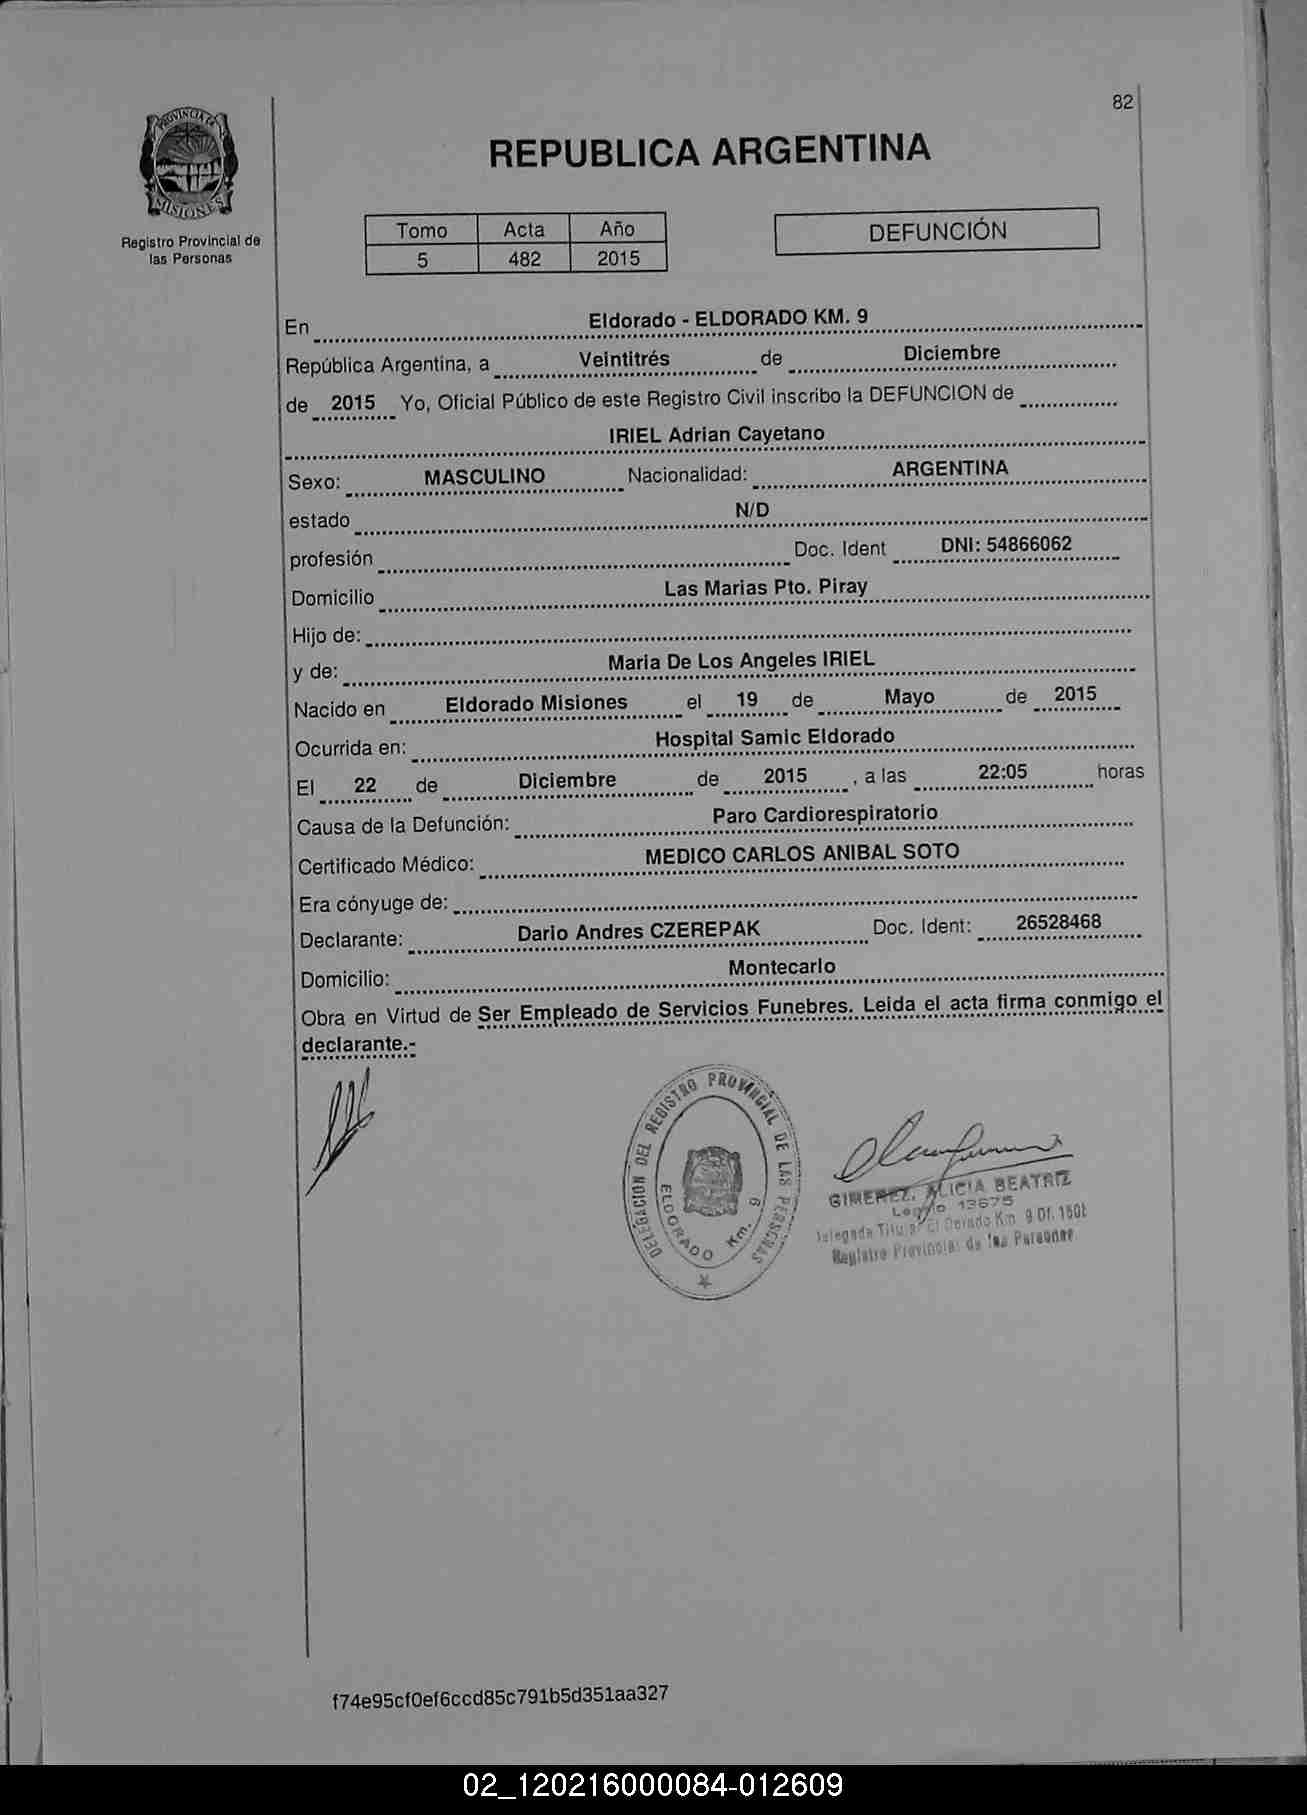 82
PROVINCIA DE
MISIONES
Registro Provincial de
las Personas
REPUBLICA ARGENTINA
Tomo Acta Año
5 482 2015
DEFUNCIÓN
En Eldorado - ELDORADO KM. 9
República Argentina, a Veintitrés de Diciembre
de 2015 Yo, Oficial Público de este Registro Civil inscribo la DEFUNCION de
IRIEL Adrian Cayetano
Sexo: MASCULINO Nacionalidad: ARGENTINA
estado N/D
profesión Doc. Ident DNI: 54866062
Domicilio Las Marias Pto. Piray
Hijo de:
y de: Maria De Los Angeles IRIEL
Nacido en Eldorado Misiones el 19 de Mayo de 2015
Ocurrida en: Hospital Samic Eldorado
El 22 de Diciembre de 2015, a las 22:05 horas
Causa de la Defunción: Paro Cardiorespiratorio
Certificado Médico: MEDICO CARLOS ANIBAL SOTO
Era cónyuge de:
Declarante: Dario Andres CZEREPAK Doc. Ident: 26528468
Domicilio: Montecarlo
Obra en Virtud de Ser Empleado de Servicios Funebres. Leida el acta firma conmigo el
declarante.-
DELEGACION DEL REGISTRO PROVINCIAL DE LAS PERSONAS
ELDORADO Km. 9
GIMENEZ, ALICIA BEATRIZ
Legajo 13675
Delegada Titular El Dorado Km. 9 Of. 1501
Registro Provincial de las Personas
f74e95cf0ef6ccd85c791b5d351aa327
02_120216000084-012609